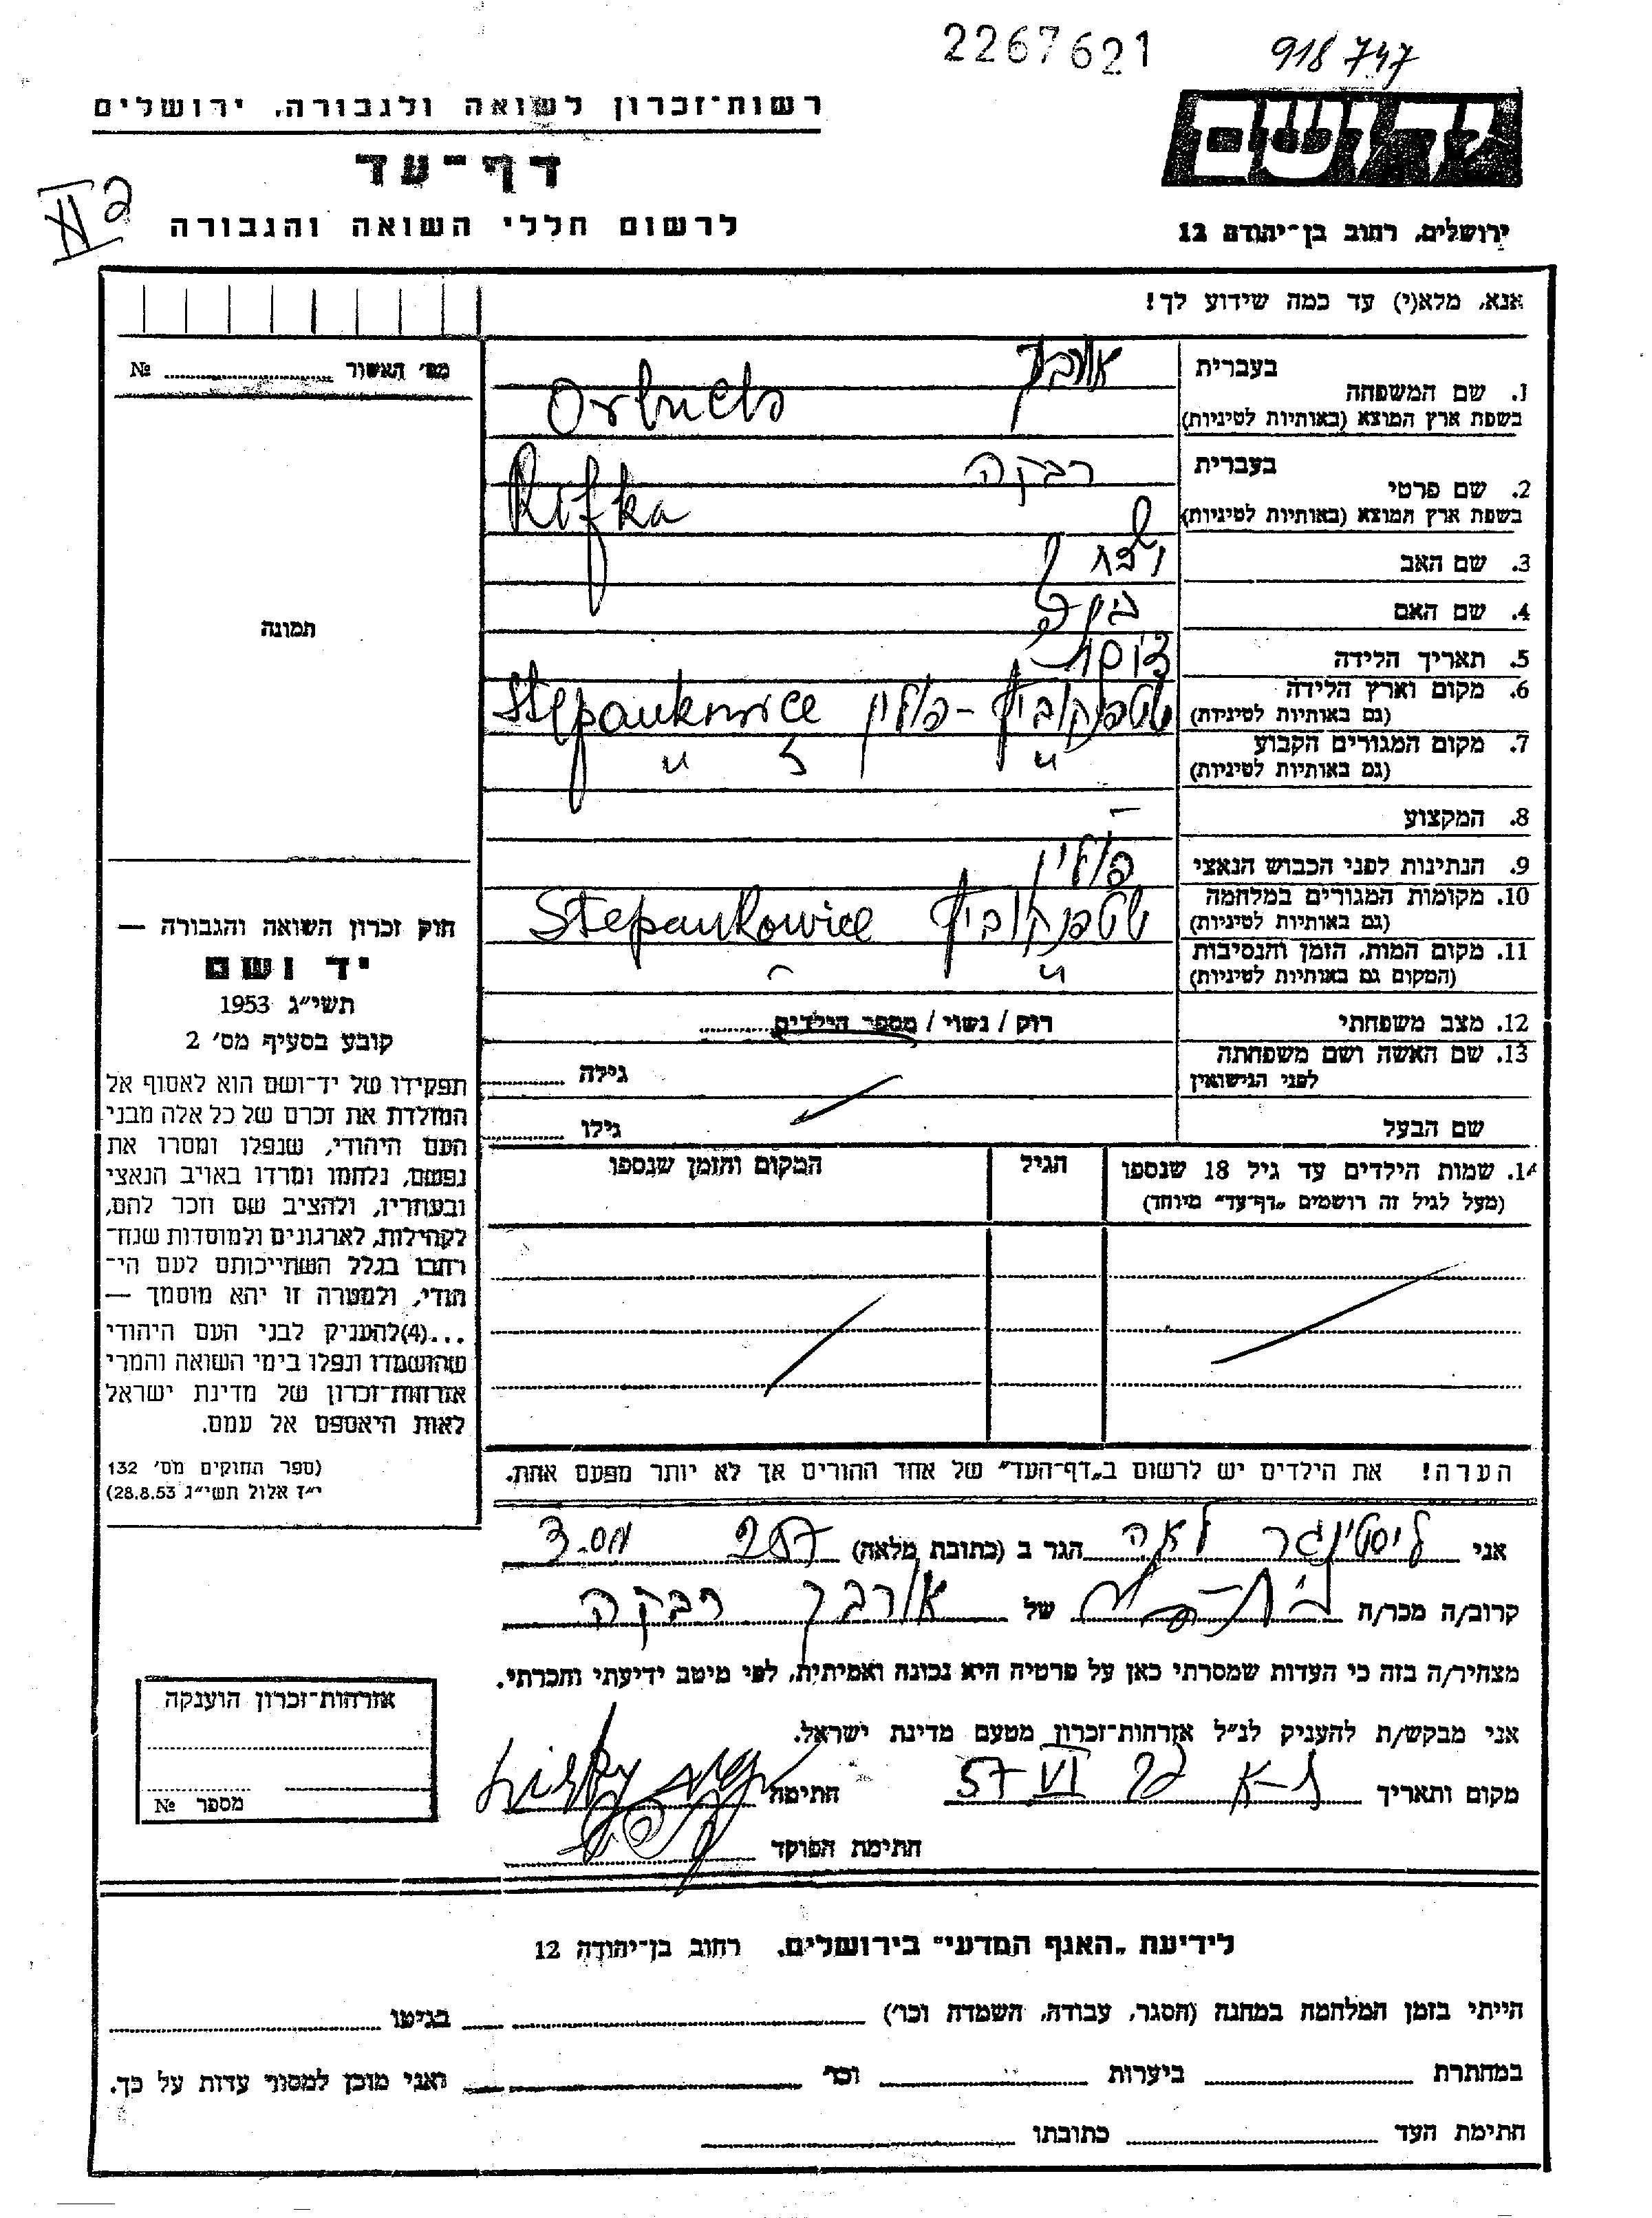 2267621
918747
רשות־זכרון לשואה ולגבורה, ירושלים
דף־עד
לרשום חללי השואה והגבורה
יד ושם
ירושלים, רחוב בן־יהודה 12
אנא, מלא(י) עד כמה שידוע לך!
מס׳ האשור № 
תמונה
1. שם המשפחה בעברית אורבך
בשפת ארץ המוצא (באותיות לטיניות) Orbuch
2. שם פרטי בעברית רבקה
בשפת ארץ המוצא (באותיות לטיניות) Rifka
3. שם האב
4. שם האם
5. תאריך הלידה
6. מקום וארץ הלידה שטפנקוביץ - פולין Stepankowice
(גם באותיות לטיניות)
7. מקום המגורים הקבוע
(גם באותיות לטיניות)
8. המקצוע –
9. הנתינות לפני הכבוש הנאצי פולין
10. מקומות המגורים במלחמה שטפנקוביץ Stepankowice
(גם באותיות לטיניות)
11. מקום המות, הזמן והנסיבות
(המקום גם באותיות לטיניות)
12. מצב משפחתי רוק / נשוי / מספר הילדים
13. שם האשה ושם משפחתה
לפני הנישואין גילה
שם הבעל גילו
14. שמות הילדים עד גיל 18 שנספו הגיל המקום והזמן שנספו
(מעל לגיל זה רושמים „דף־עד״ מיוחד)
הערה! את הילדים יש לרשום ב„דף־העד״ של אחד ההורים אך לא יותר מפעם אחת.
חוק זכרון השואה והגבורה —
יד ושם
תשי״ג 1953
קובע בסעיף מס׳ 2
תפקידו של יד־ושם הוא לאסוף אל
המולדת את זכרם של כל אלה מבני
העם היהודי, שנפלו ומסרו את
נפשם, נלחמו ומרדו באויב הנאצי
ובעוזריו, ולהציב שם וזכר להם,
לקהילות, לארגונים ולמוסדות שנח־
רבו בגלל השתייכותם לעם הי־
הודי, ולמטרה זו יהא מוסמך —
...(4)להעניק לבני העם היהודי
שהושמדו ונפלו בימי השואה והמרי
אזרחות־זכרון של מדינת ישראל
לאות היאספם אל עמם.
(ספר החוקים מס׳ 132
י״ז אלול תשי״ג 28.8.53)
אני ליסטינגר לאה הגר ב (כתובת מלאה)
קרוב/ה מכר/ה של אורבך רבקה
מצהיר/ה בזה כי העדות שמסרתי כאן על פרטיה היא נכונה ואמיתית, לפי מיטב ידיעתי והכרתי.
אני מבקש/ת להעניק לנ״ל אזרחות־זכרון מטעם מדינת ישראל.
מקום ותאריך VI 57 חתימה
חתימת הפוקד
אזרחות־זכרון הוענקה
מספר №
לידיעת „האגף המדעי״ בירושלים, רחוב בן־יהודה 12
הייתי בזמן המלחמה במחנה (הסגר, עבודה, השמדה וכו׳) בגיטו
במחתרת ביערות וכו׳ ואני מוכן למסור עדות על כך.
חתימת העד כתובתו